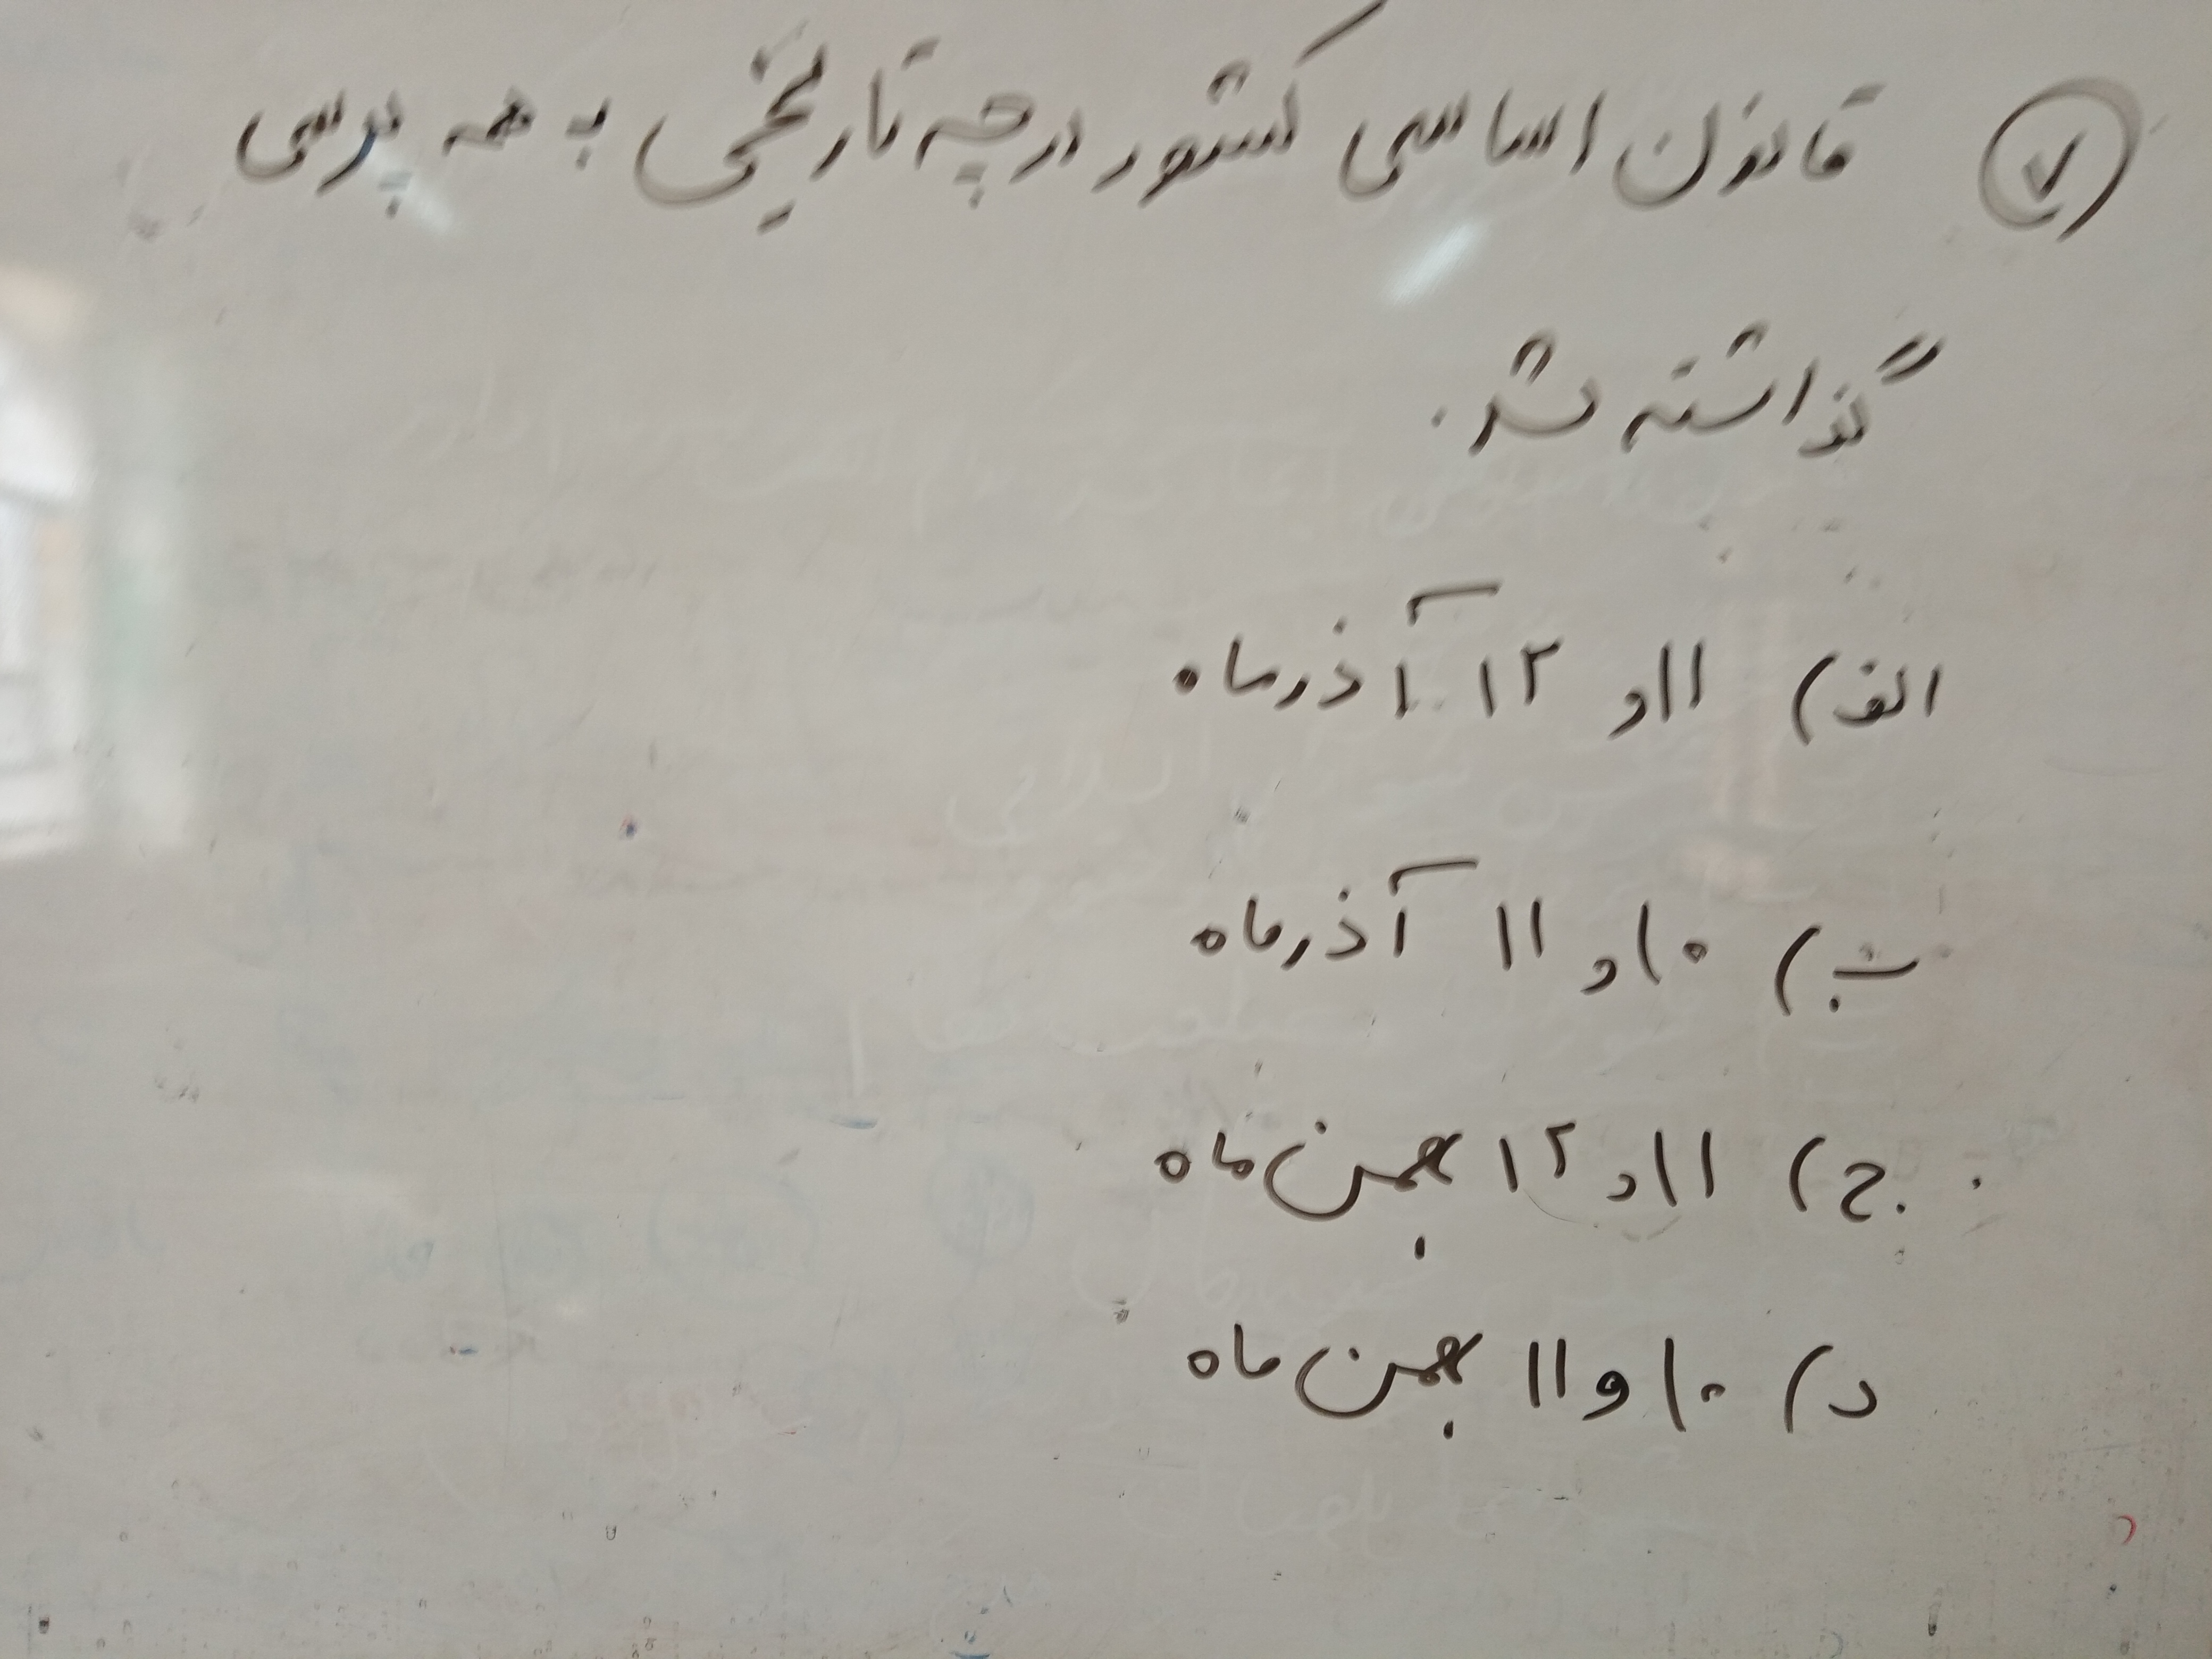 ۷ قانون اساسی کشور در چه تاریخی به همه پرسی
گذاشته شد.
الف) ۱۱ و ۱۲ آذرماه
ب) ۱۰ و ۱۱ آذرماه
ج) ۱۱ و ۱۲ بهمن ماه
د) ۱۰ و ۱۱ بهمن ماه